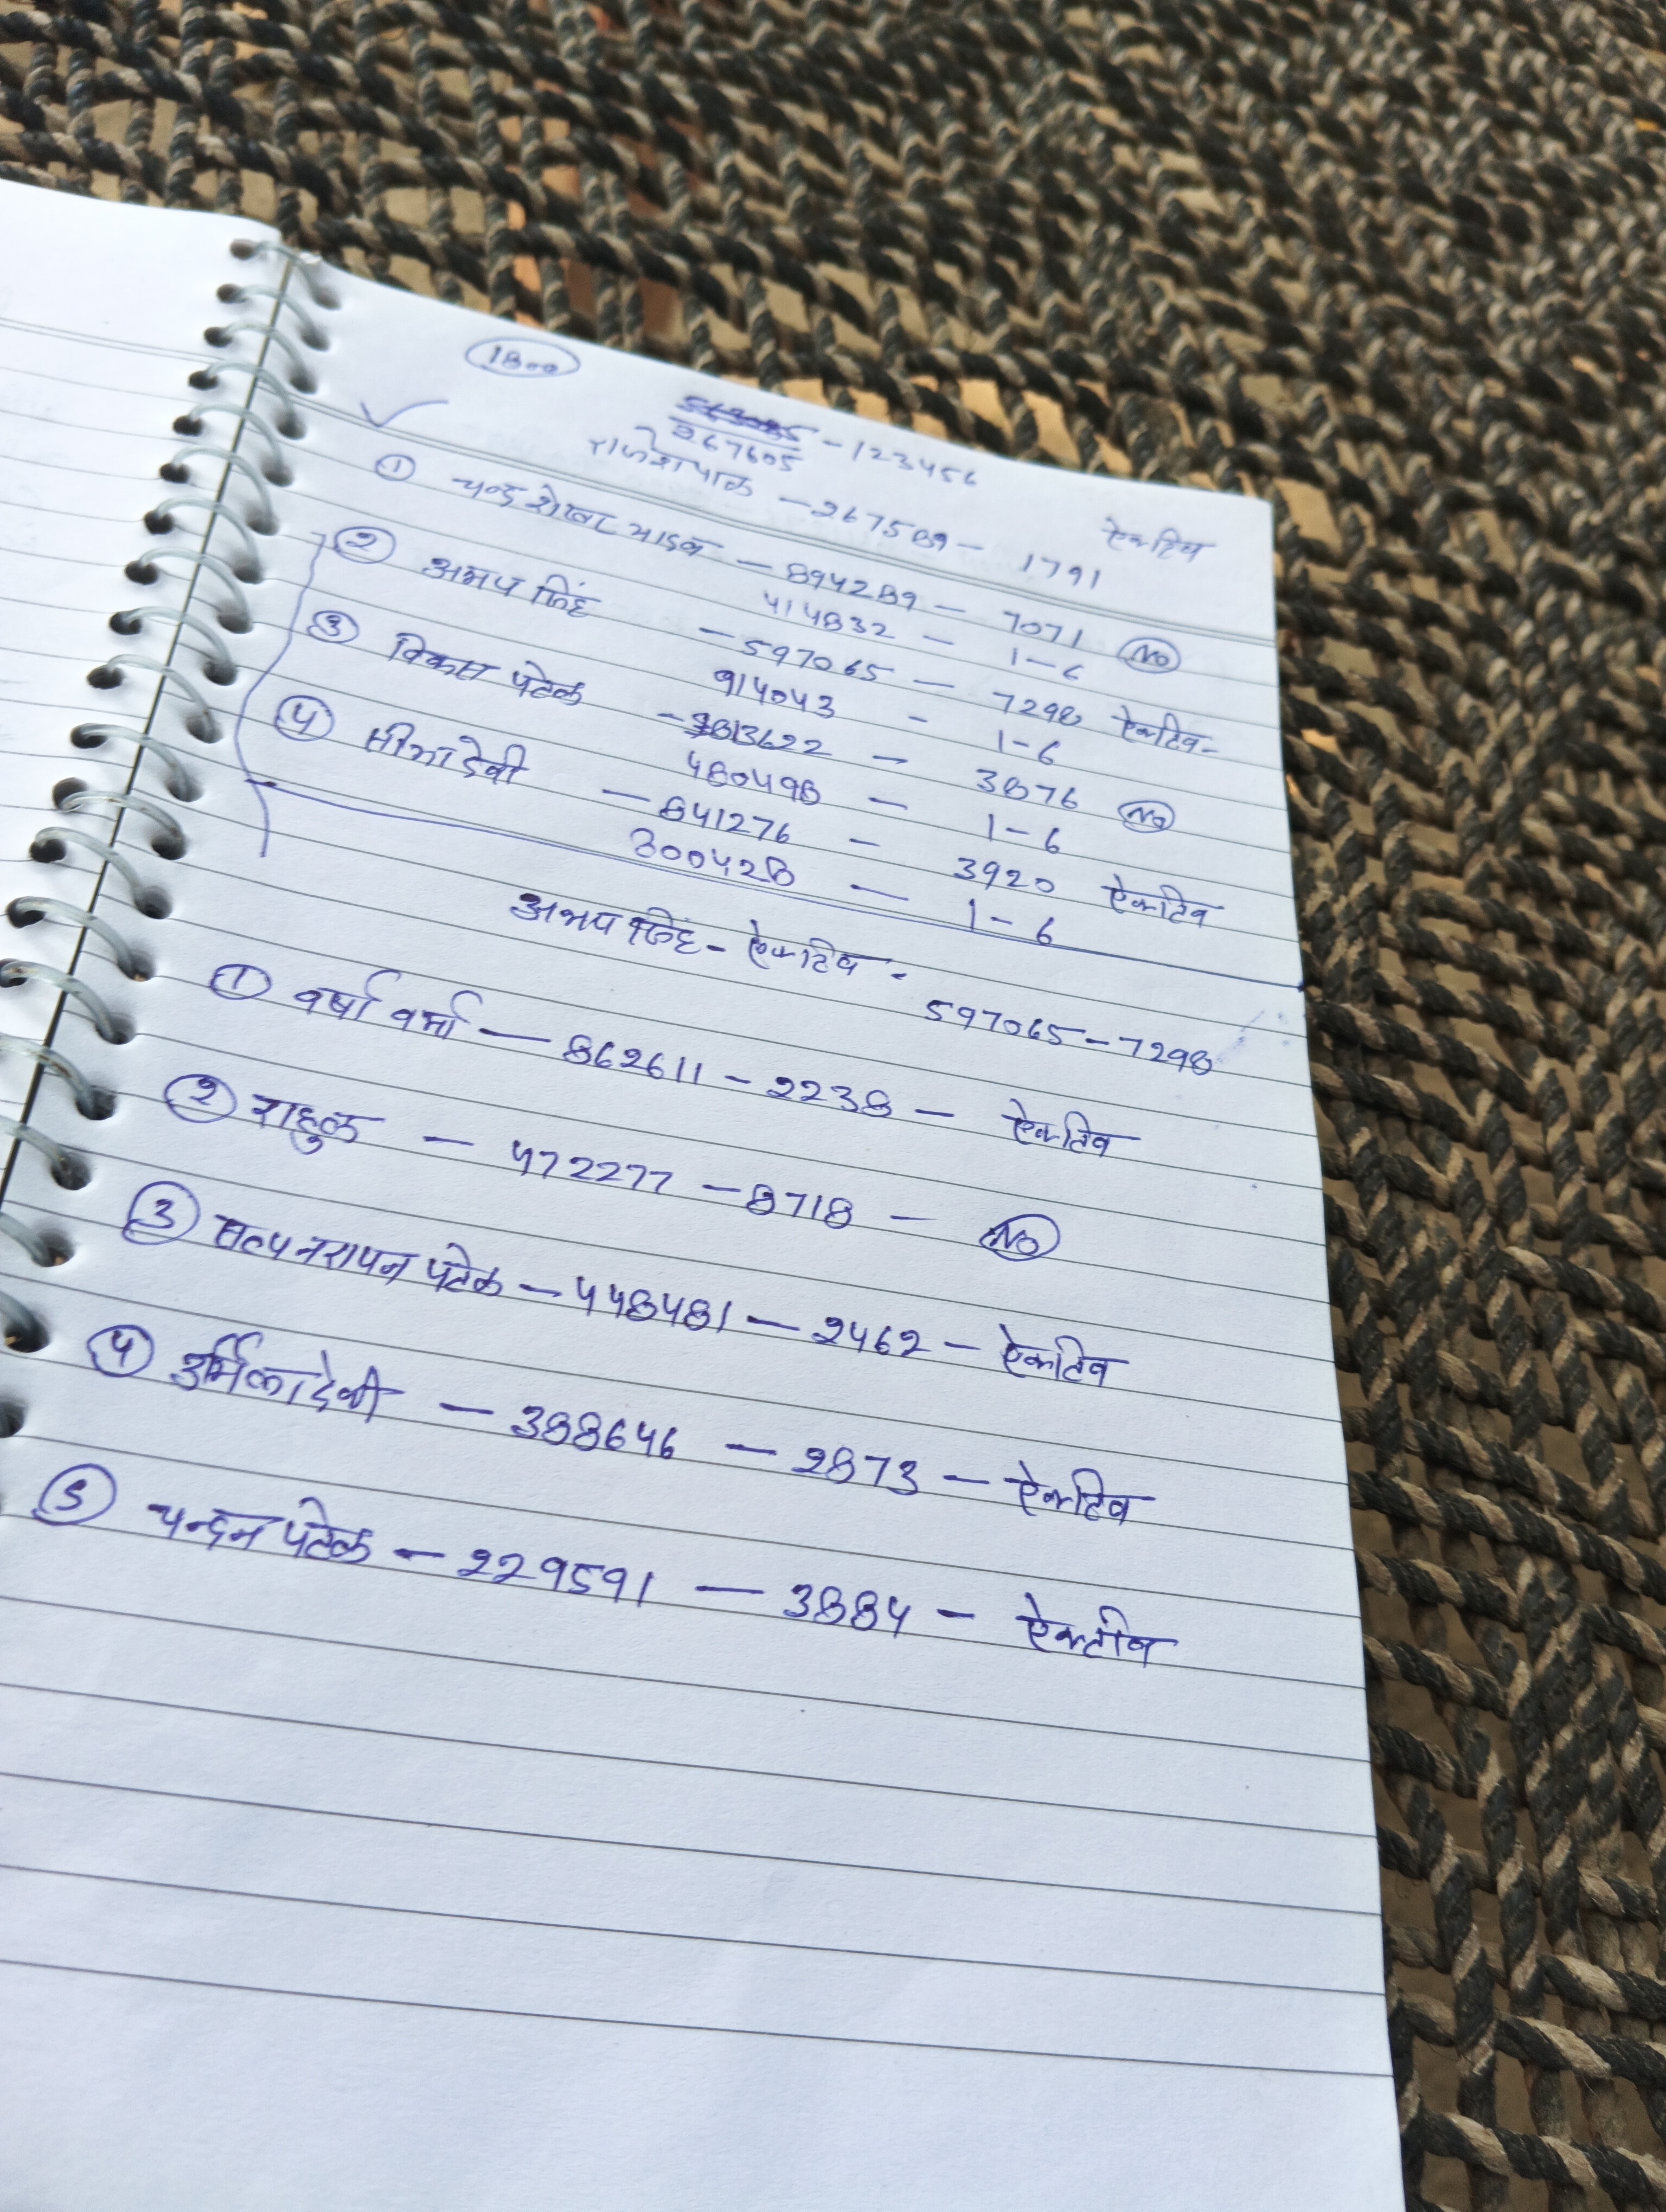 1800
267605 - 123456
राजेशपाल - 267589 - 1791 ऐक्टिव
① चन्द्रशेखर यादव - 894289 - 7071 NO
414832 - 1-6
② अभय सिंह - 597065 - 7298 ऐक्टिव-
914043 - 1-6
③ विकास पटेल - 3813622 - 3876 NO
480498 - 1-6
④ सीमा देवी - 841276 - 3920 ऐक्टिव
300428 - 1-6
अभय सिंह - ऐक्टिव - 597065 - 7298
① वर्षा वर्मा - 862611 - 2238 - ऐक्टिव
② राहुल - 472277 - 8718 - NO
③ सत्यनरायन पटेल - 448481 - 2462 - ऐक्टिव
④ उर्मिला देवी - 388646 - 2873 - ऐक्टिव
⑤ चन्दन पटेल - 229591 - 3884 - ऐक्टीव